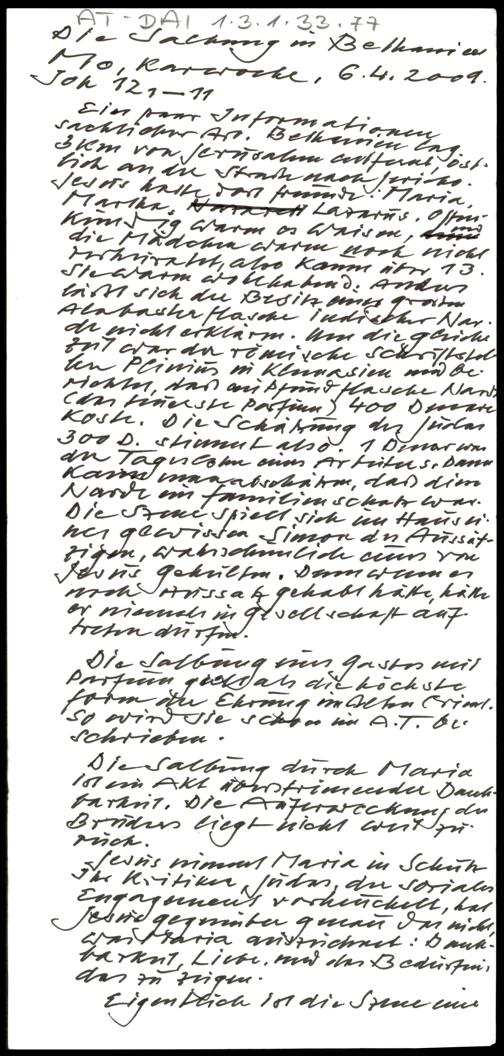 AT-DAI 1.3.1.33.77
Die Salbung in Bethanien
Mo, Karwoche, 6.4.2009.
Joh 12 1–11
Ein paar Informationen
sachlicher Art. Bethanien lag
3 km von Jerusalem entfernt, öst-
lich an der Straße nach Jericho.
Jesus hatte dort Freunde: Maria,
Martha, Lazarus. Offen-
kundig waren es Waisen,
die Mädchen waren noch nicht
verheiratet, also kaum über 13.
Sie waren wohlhabend. Anders
läßt sich der Besitz einer großen
Alabasterflasche indischer Nar-
de nicht erklären. Um die gleiche
Zeit war der römische Schriftstel-
ler Plinius in Kleinasien und be-
richtet, daß ein Pfund flasche Narde
(das teuerste Parfüm) 400 Denare
koste. Die Schätzung des Judas
300 D. stimmt also. 1 Denar war
der Tageslohn eines Arbeiters. Dann
kann man abschätzen, daß diese
Narde ein Familienschatz war.
Die Szene spielt sich im Haus ei-
nes gewissen Simon des Aussät-
zigen, wahrscheinlich eines von
Jesus geheilten. Denn wenn er
noch Aussatz gehabt hätte, hätte
er niemals in Gesellschaft auf-
treten dürfen.
Die Salbung eines Gastes mit
Parfüm galt als die höchste
Form der Ehrung im Alten Orient.
So wird sie schon im A.T. be-
schrieben.
Die Salbung durch Maria
ist ein Akt überströmender Dank-
barkeit. Die Auferweckung des
Bruders liegt nicht weit zu-
rück.
Jesus nimmt Maria in Schutz
Ihr Kritiker Judas, der soziales
Engagement vorheuchelt, hat
Jesus gegenüber genau das nicht,
was Maria auszeichnet: Dank-
barkeit, Liebe und das Bedürfnis,
das zu zeigen.
Eigentlich ist die Szene eine